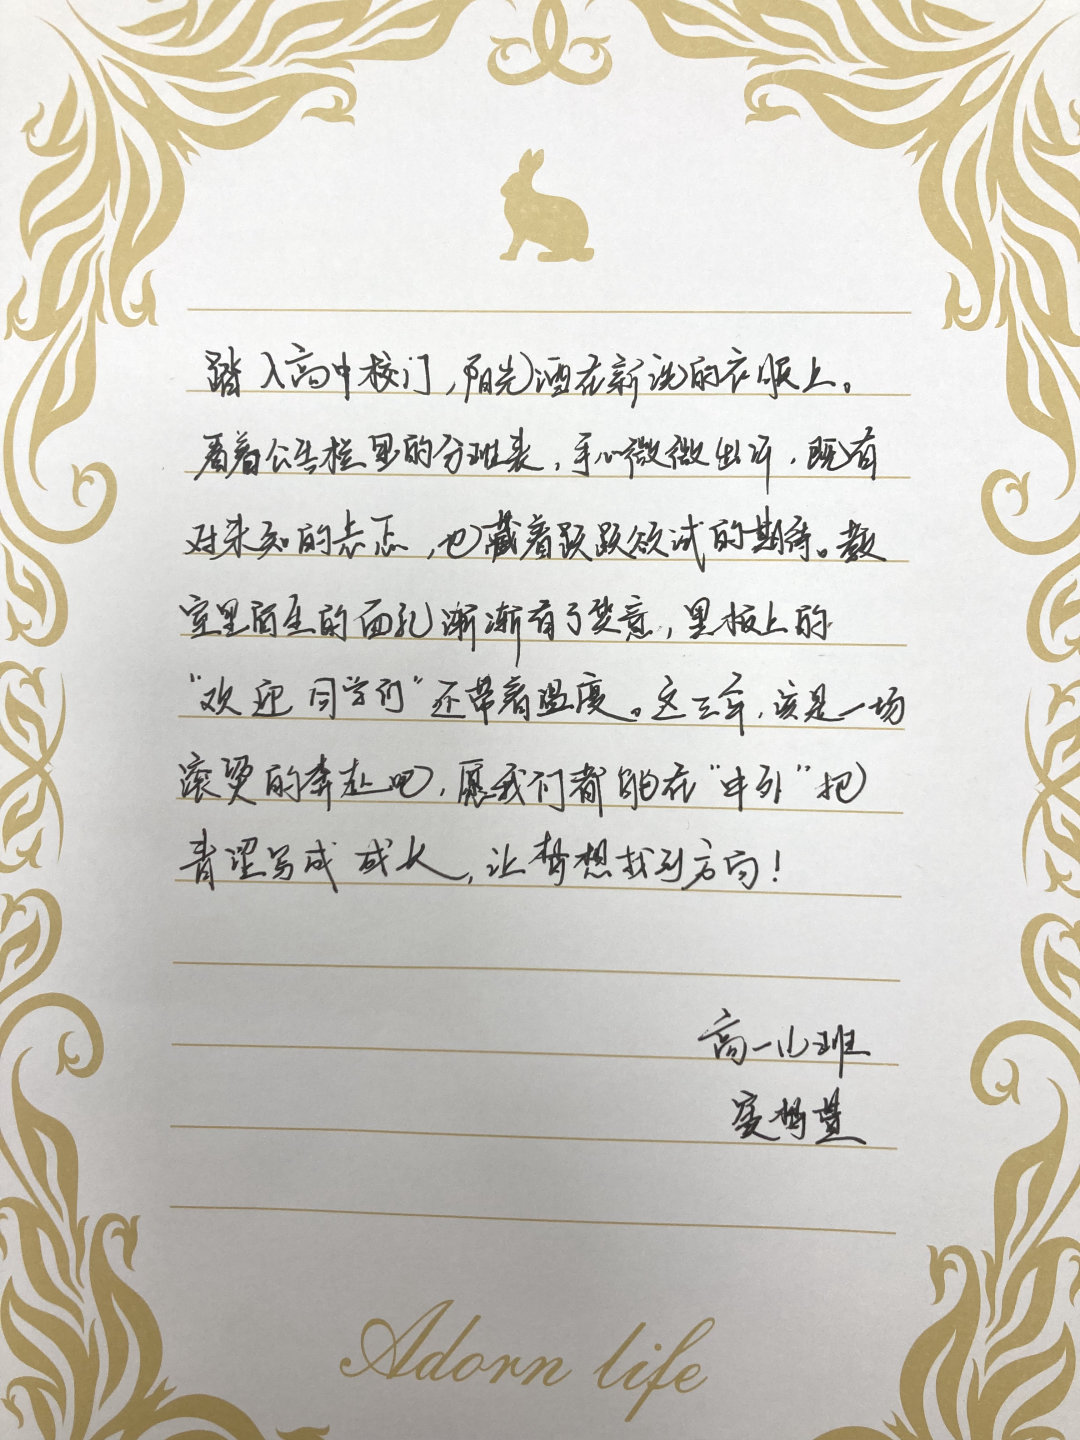 踏入高中校门，阳光洒在新洗的衣服上。
看着公告栏里的分班表，手心微微出汗，既有
对未知的忐忑，也藏着跃跃欲试的期待。教
室里陌生的面孔渐渐有了笑意，黑板上的
“欢迎同学们”还带着温度。这三年，该是一场
滚烫的奔赴吧，愿我们都能在“中外”把
青涩写成成长，让梦想找到方向！
高一11班
梦萱
Adorn life